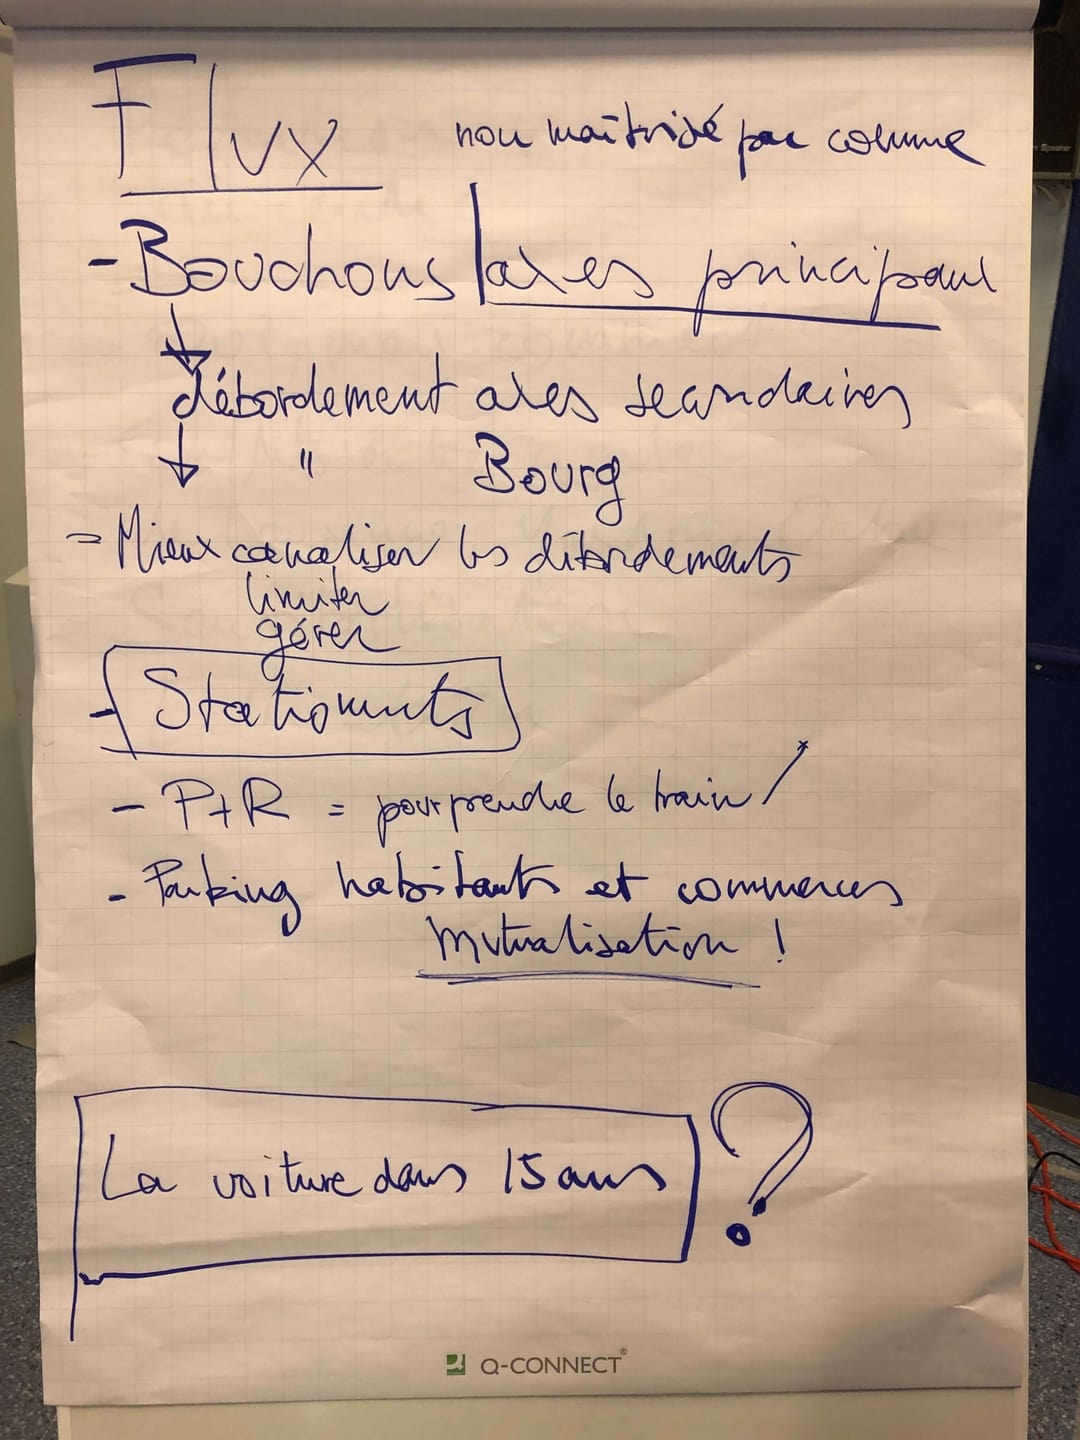 Flux non maîtrisé par comune
- Bouchons axes principaux
débordement axes secondaires
" Bourg
= Mieux canaliser les débordements
limiter
gérer
- Stationmts
- P+R = pour prendre le train /
- Parking habitants et commerces
Mutualisation !
La voiture dans 15 ans ?
Q-CONNECT®